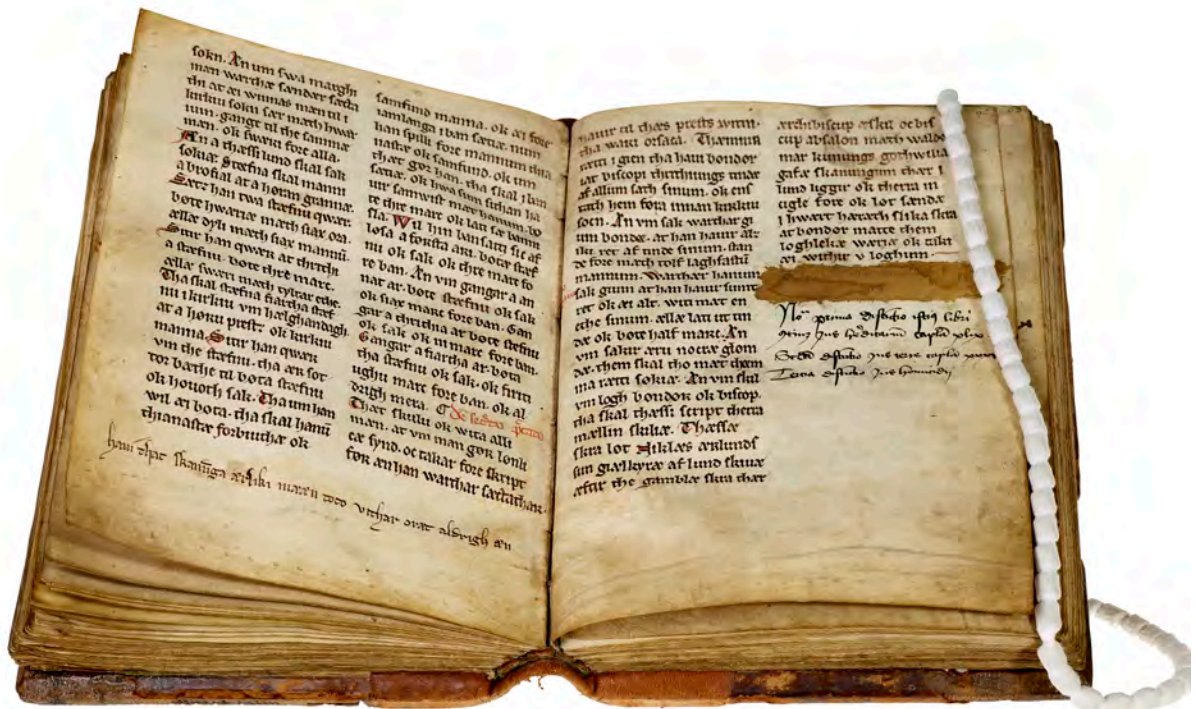 sokn. Æn um swa marghi
mæn warthæ sændær sæcta
thi at æi winnas mæn til i
kirkiu sokn sær mæth hwar
ium. gange til the sammæ
mæn. ok swæri fore alla.
Æn a thæssi lund skal sak
sokiæ. Stæfna skal manni
a brofial at a horan grannæ.
Sætz han twa stæfnu qwær.
bote hwariæ mæth siax ora.
ællæ dyli mæth siax mannū.
Sitir han qwær at thrithi
a stæfnu. bote thre marc.
ællæ swæri mæth tyltar ethe.
Tha skal stæfna fiartha stæf
nu i kirkiu vm hælghandagh
at a horu prest. ok kirkiu
manna. Sitir han qwær
vm the stæfnu. tha ær sot
tor bæthe til bota stæfnu
ok houoth sak. Tha um han
wil æi bota. tha skal hanū
thianastæ forbiuthæ ok
samfund manna. ok æi fore
iamlanga i ban sætiæ. num
han spilli fore mannum thia
nastæ ok samfund. ok um
thær gør han. tha skal i ban
sætiæ. ok hwa sum sithan ha
uir samwist mær hanum. bo
te thre marc ok lati sæ banni
sla. Wil hin bansatti sic af
losa a forsta ari. bote stæf
nu ok sak ok thre marc fo
re ban. Æn vm gangar a an
nat ar. bote stæfnu ok sak
ok siax marc fore ban. Gan
gar a thrithia ar bote stæfnu
ok sak. ok ni marc fore ban.
Gangar a fiartha ar. bota
tha stæfnu ok sak. ok fiuti
ughu marc fore ban. ok al
drigh mera.
Thær skulu ok wita alli
mæn. at vm man gør lønli
cæ synd. oc takar fore skript
for æn han warthar sæctathar.
hauir til thæs prests witni.
tha wari orsatta. Thæmma
rætti i gien tha haui bondor
lat biscopi thrithiungs tinæ
af allum sæth sinum. ok ens
tæth hem fora innan kirkiu
socn. Æn vm sak warthar gi
uin bondæ. at han hauir al
kit ret af tinde sinum. stan
de fore mæth tolf laghfastū
mannum. Warthær hanum
sak giuin at han hauir sumt
ret ok æi alt. witi mæt en
ethe sinum. ællæ lati ut tin
dæ ok bote half marc. Æn
vm sakir æru nocræ glom
dæ. them skal tho mæt them
ma rætti sokiæ. Æn vm skil
vm logh bondor ok biscop.
tha skal thæssi script thera
mællin skiliæ. Thæssæ
skra lot Niklæs ærlunds
sun giælkyræ af lund skiuæ
æftir the gamblæ skra thær
ærchibiscup æskil oc bis
cup absalon mæth waldæ
mar kunungs gothwilia
gafæ skanungum thær i
lund liggir ok thera in
cigle fore ok lot sændæ
i hwart hæræth slika skra
at bondor matte them
loghlekæ wæriæ ok takit
æi withir v loghum.
prima distinctio istius libri